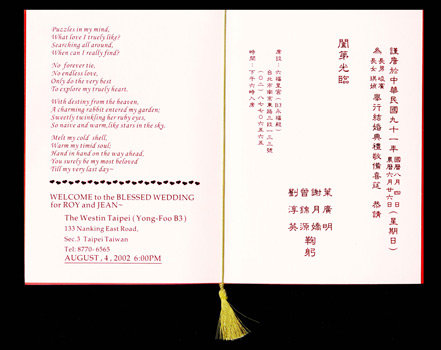 Puzzles in my mind,
What love I truely like?
Searching all around,
When can I really find?
No forever tie,
No endless love,
Only do the very best
To explore my truely heart.
With destiny from the heaven,
A charming rabbit entered my garden;
Sweetly twinkling her ruby eyes,
So naive and warm,like stars in the sky.
Melt my cold shell,
Warm my timid soul;
Hand in hand on the way ahead,
You surely be my most beloved
Till my very last day~
WELCOME to the BLESSED WEDDING
for ROY and JEAN~
The Westin Taipei (Yong-Foo B3)
133 Nanking East Road,
Sec.3 Taipei Taiwan
Tel: 8770-6565
AUGUST , 4 , 2002 6:00PM
謹詹於中華民國九十一年
國曆八月四日
農曆六月廿六日
(星期日)
為
長男
長女
舉行結婚典禮敬備喜筵 恭請
闔第光臨
葉廣明
謝月嬌
曾錦源
劉淳英
鞠躬
席設:六福皇宮(B3永福殿)
台北市南京東路三段一三三號
(〇二)八七七〇六五六五
時間:下午六時入席